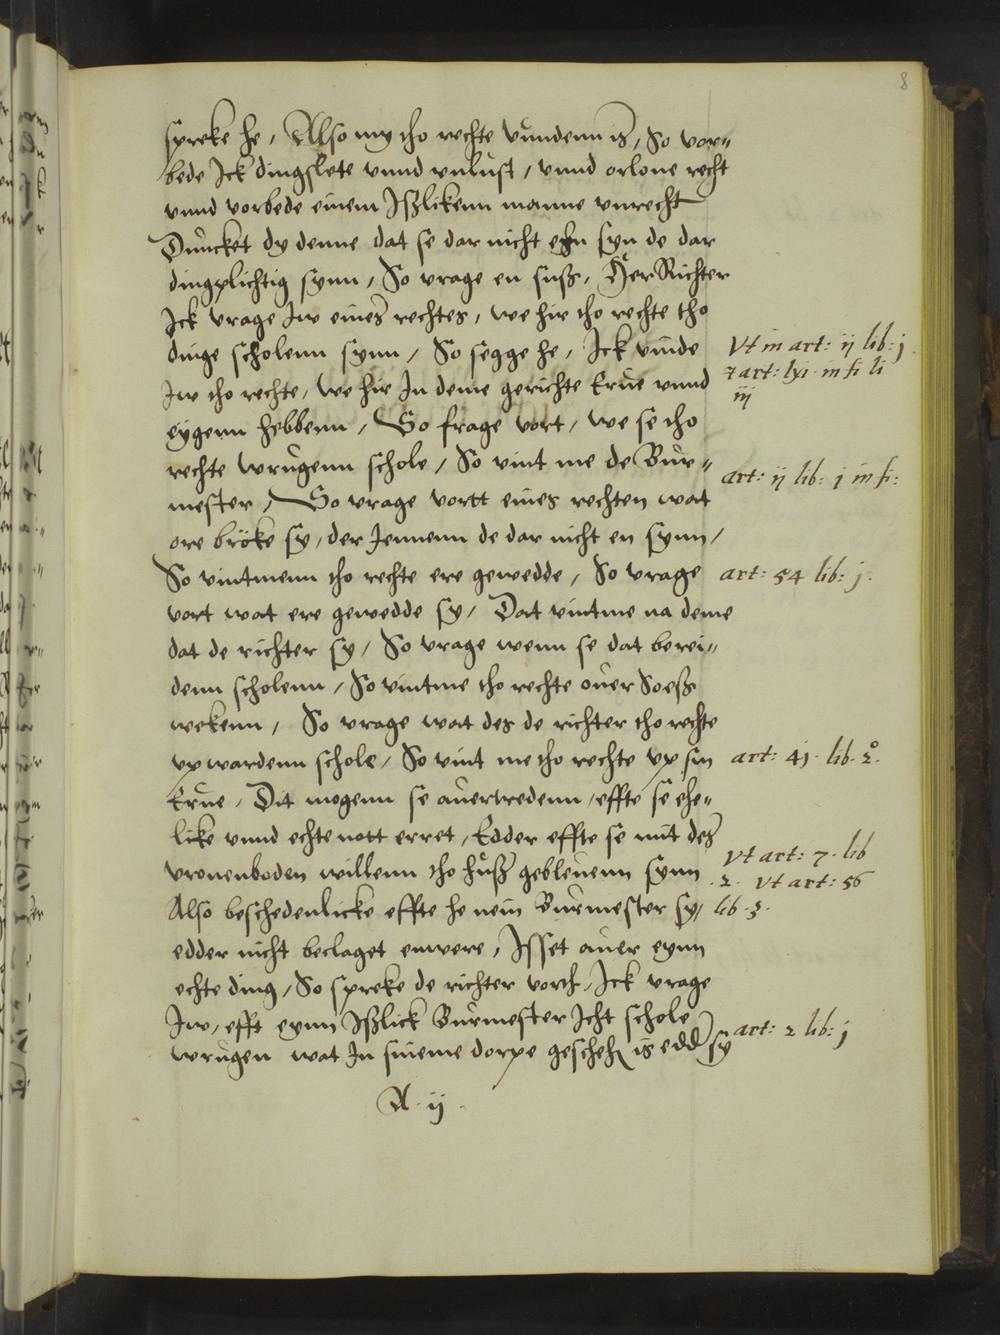 8
spreke he, Also my tho rechte vundenn is, So vor=
bede Ick dingslete vnnd vnlust, vnnd orlove recht
vnnd vorbede einem Ißlikenn manne vnrecht
Duncket dy denne dat se dar nicht ehn syn de dar
dingplichtig synn, So vrage en suß, Her Richter
Ick vrage Iw eines rechtes, we hir tho rechte tho
dinge scholenn synn, So segge he, Ick vinde
Iw tho rechte, we hir In deme gerichte Erue vnnd
eygenn hebbenn, So frage vort, we se tho
rechte wrugenn schole, So vint me de Bur=
mester, So vrage vortt eines rechten wat
ore bröke sy, der Jennenn de dar nicht en synn,
So vintmenn tho rechte ere gewedde, So vrage
vort wat ere gewedde sy, Dat vintme na deme
dat de richter sy, So vrage wenn se dat berei=
denn scholenn, So vintme tho rechte ouer Soeß
wekenn, So vrage wat des de richter tho rechte
vp wardenn schole, So vint me tho rechte vp sin
Erue, Dit mogenn se auertredenn, effte se ehe=
like vnnd echte nott erret, Edder effte se mit des
vronenboden willenn tho huß gebleuenn synn
Also beschedenlicke effte he nein Burmester sy,
edder nicht beclaget enwere, Isset auer eynn
echte ding, So spreke de richter vorth, Ick vrage
Iw, efft eynn Ißlick Burmester Icht schole
wrugen wat In sineme dorpe gescheh is edd sy
A ij
Vt in art: ij lib: j
7 art: lxi in fi li
iij
art: ij lib: j in fi:
art: 54 lib: j.
art: 41. lib. 2.
Vt art: 7. lib
.2. Vt art: 56
lib .3.
art: 2 lib: j